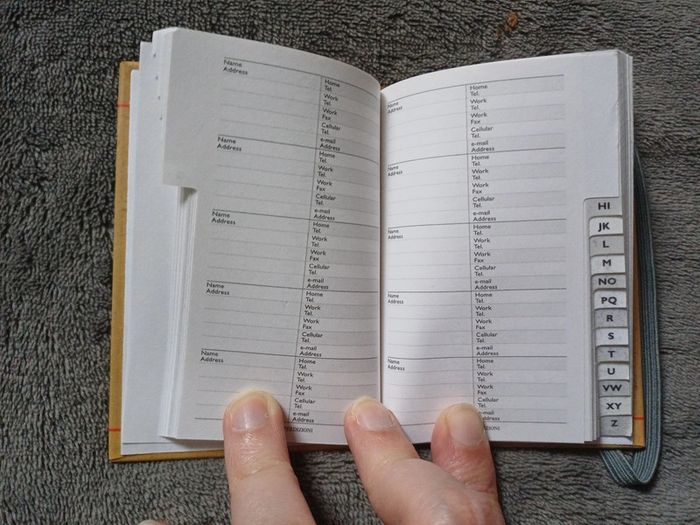 Name
Address
Home
Tel.
Work
Tel.
Work
Fax
Cellular
Tel.
e-mail
Address
Name
Address
Home
Tel.
Work
Tel.
Work
Fax
Cellular
Tel.
e-mail
Address
Name
Address
Home
Tel.
Work
Tel.
Work
Fax
Cellular
Tel.
e-mail
Address
Name
Address
Home
Tel.
Work
Tel.
Work
Fax
Cellular
Tel.
e-mail
Address
Name
Address
Home
Tel.
Work
Tel.
Work
Fax
Cellular
Tel.
e-mail
Address
Name
Address
Home
Tel.
Work
Tel.
Work
Fax
Cellular
Tel.
e-mail
Address
Name
Address
Home
Tel.
Work
Tel.
Work
Fax
Cellular
Tel.
e-mail
Address
Name
Address
Home
Tel.
Work
Tel.
Work
Fax
Cellular
Tel.
e-mail
Address
Name
Address
Home
Tel.
Work
Tel.
Work
Fax
Cellular
Tel.
e-mail
Address
Name
Address
Home
Tel.
Work
Tel.
Work
Fax
Cellular
Tel.
e-mail
Address
HI
JK
L
M
NO
PQ
R
S
T
U
VW
XY
Z